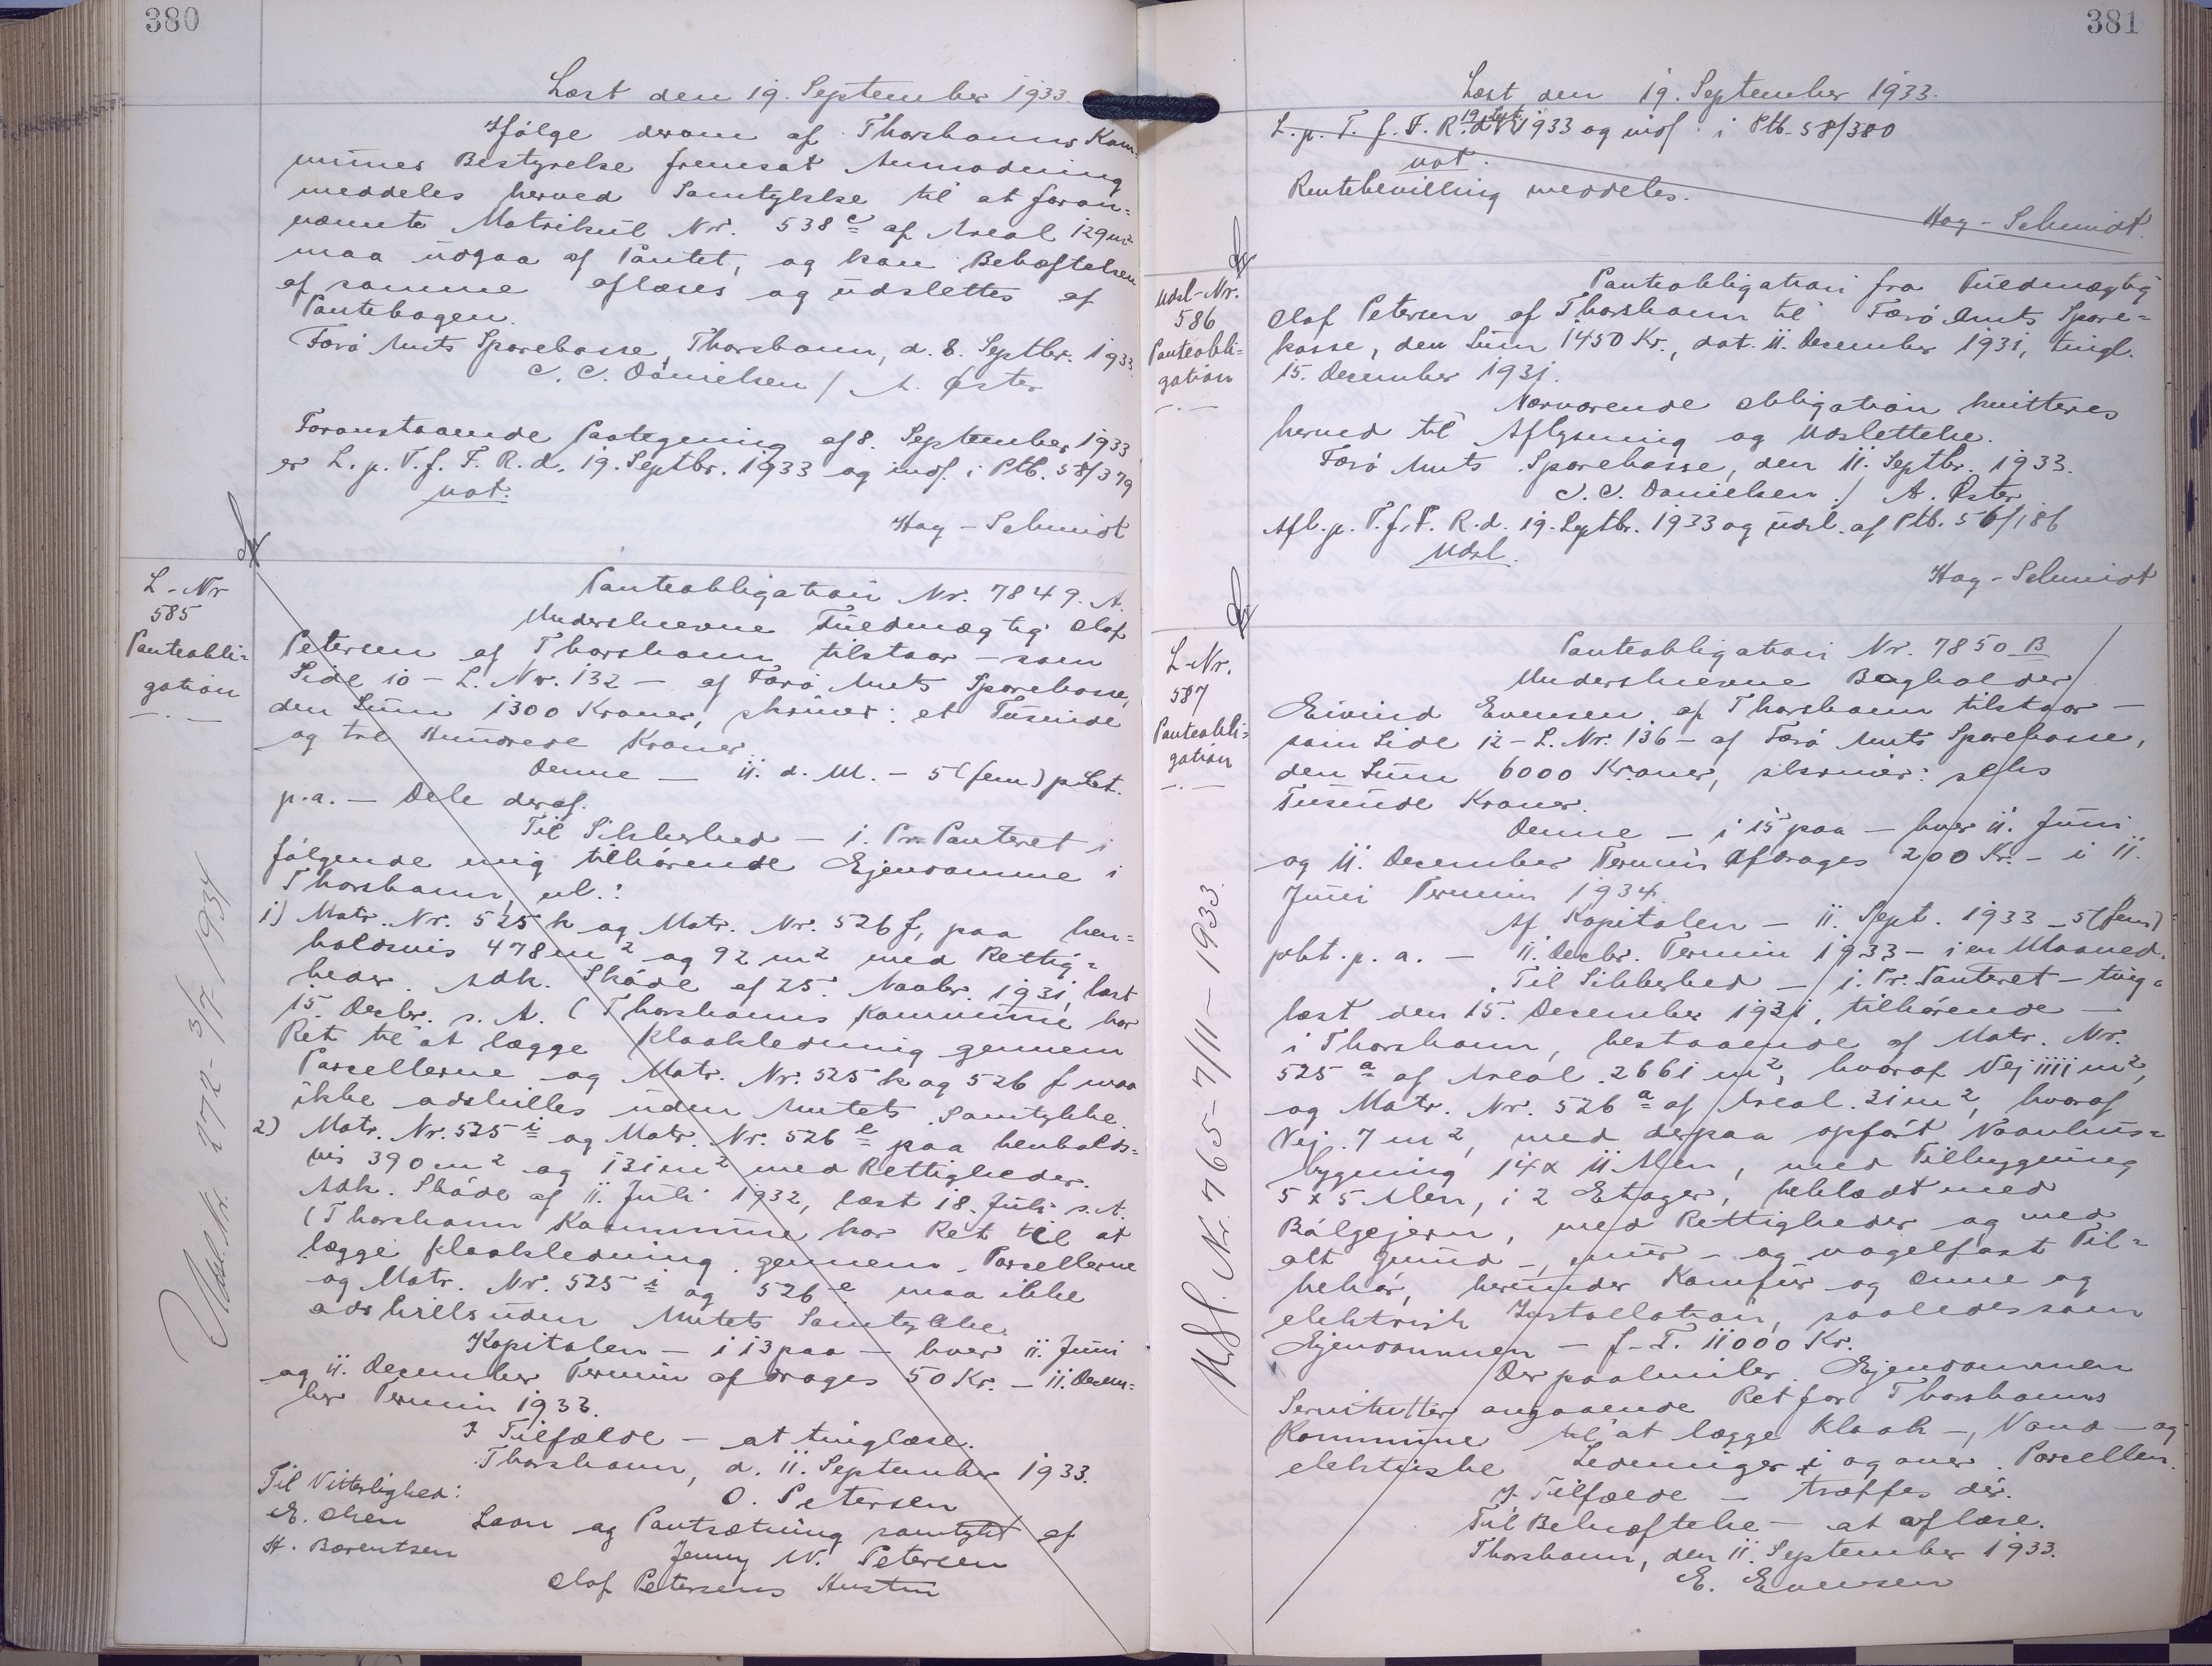 380
Læst den 19. September 1933.
Ifølge derom af Thorshavns Kom=
munes Bestyrelse fremsat Anmodning
meddeles herved Samtykke til at foran=
nævnte Matrikul Nr. 538 c af Areal 129 m²
maa udgaa af Pantet, og kan Behæftelsen
af samme aflæses og udslettes af
Pantebogen.
Færø Amts Sparekasse, Thorshavn, d. 8. Septbr. 1933.
C. C. Danielsen / A. Øster
Foranstaaende Paategning af 8. September 1933
er L. p. T. f. F. R. d. 19. Septbr. 1933 og indf. i Ptb. 58/379
not.
Hag-Schmidt
L-Nr
585
Panteobli=
gation
Panteobligation Nr. 7849. A.
Underskrevne Fuldmægtig Olaf
Petersen af Thorshavn tilstaar – som
Side 10 – L. Nr. 132 – af Færø Amts Sparekasse,
den Sum 1300 Kroner, skriver: et Tusinde
og tre Hundrede Kroner.
Denne – 11. d. M. – 5 (fem) pCt.
p.a. – Dele deraf.
Til Sikkerhed – 1. Pr. Panteret i
følgende mig tilhørende Ejendomme i
Thorshavn, nl.:
1) Matr. Nr. 525 k og Matr. Nr. 526 f, paa hen=
holdsvis 478 m² og 92 m² med Rettig=
heder. Adk. Skøde af 25. Novbr. 1931, læst
15. Decbr. s. A. (Thorshavns Kommune har
Ret til at lægge Kloakledning gennem
Parsellerne og Matr. Nr. 525 k og 526 f maa
ikke adskilles uden Amtets Samtykke.
2) Matr. Nr. 525 i og Matr. Nr. 526 e paa henholds=
vis 390 m² og 131 m² med Rettigheder.
Adk. Skøde af 11. Juli 1932, læst 18. Juli s. A.
(Thorshavn Kommune har Ret til at
lægge Kloakledning gennem Parsellerne
og Matr. Nr. 525 i og 526 e maa ikke
adskills uden Amtets Samtykke.
Kapitalen – i 13 paa – hver 11. Juni
og 11. December Termin afdrages 50 Kr. – 11. Decem=
ber Termin 1933.
I Tilfælde – at tinglæse.
Thorshavn, d. 11. September 1933.
Til Vitterlighed:
O. Petersen
E. Olsen Laan og Pantsætning samtykt af
H. Barentsen
Jenny N. Petersen
Olaf Petersens Hustru
Udsl. Nr. 272 - 3/7 1934
381
Læst den 19. September 1933.
L. p. T. f. F. R. d. 19. Sept. 1933 og indf. i Ptb. 58/380
not.
Rentebevilling meddeles.
Hag-Schmidt.
Udsl-Nr.
586
Panteobli=
gation
Panteobligation fra Fuldmægtig
Olaf Petersen af Thorshavn til Færø Amts Spare=
kasse, den Sum 1450 Kr., dat. 11. December 1931, tingl.
15. December 1931.
Nærværende Obligation kvitteres
herved til Aflysning og Udslettelse.
Færø Amts Sparekasse, den 11. Septbr. 1933.
C. C. Danielsen / A. Øster
Afl. p. T. f. F. R. d. 19. Septbr. 1933 og udsl. af Ptb. 56/186
Udsl.
Hag-Schmidt
L-Nr.
587
Panteobli=
gation
Panteobligation Nr. 7850 B
Underskrevne Bogholder
Eivind Evensen af Thorshavn tilstaar –
som Side 12 – L. Nr. 136 – af Færø Amts Sparekasse,
den Sum 6000 Kroner, skriver: seks
Tusinde Kroner.
Denne – i 15 paa – hver 11. Juni
og 11. December Termin afdrages 200 Kr. – i 11.
Juni Termin 1934.
Af Kapitalen – 11. Sept. 1933 – 5 (fem)
pCt. p. a. – 11. Decbr. Termin 1933 – i en Maaned.
Til Sikkerhed – 1. Pr. Panteret – ting=
læst den 15. December 1931, tilhørende –
i Thorshavn, bestaaende af Matr. Nr.
525 a af Areal 2661 m², hvoraf Vej 1111 m²,
og Matr. Nr. 526 a af Areal 31 m², hvoraf
Vej 7 m², med derpaa opført Vaanhus=
bygning 14 x 11 Alen, med Tilbygning
5 x 5 Alen, i 2 Etager, beklædt med
Bølgejern, med Rettigheder og med
alt grund-, mur- og nagelfast Til=
behør, herunder Komfur og Ovne og
elektrisk Installation, saaledes som
Ejendommen – f-T. 11000 Kr.
Der paahviler Ejendommen
Servitutter angaaende Ret for Thorshavns
Kommune til at lægge Kloak-, Vand- og
elektriske Ledninger i og over Parsellen.
I Tilfælde – træffes dér.
Til Bekræftelse – at aflæse.
Thorshavn, den 11. September 1933.
E. Evensen
Udsl. Nr. 765 - 7/11 - 1933.